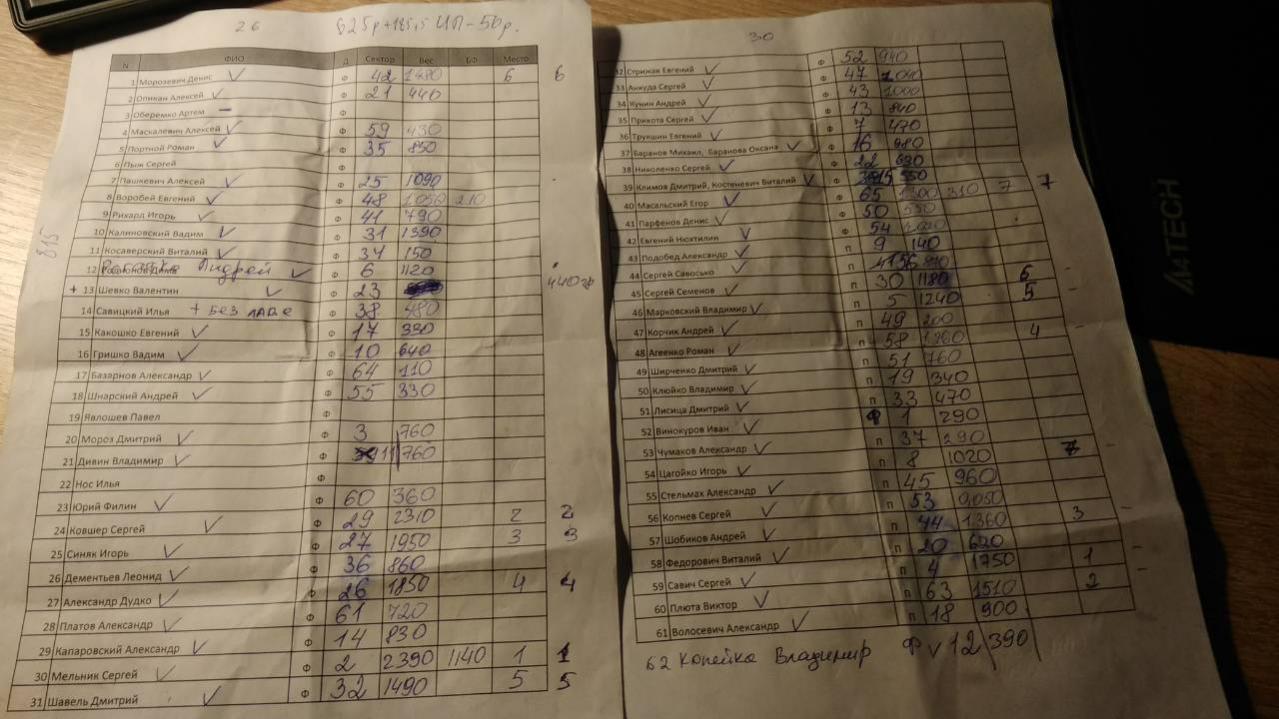 26 625р + 185,5 ИП - 50р.
N ФИО Д Сектор Вес БФ Место
1 Морозевич Денис ✓ Ф 42 1480 6 6
2 Опикан Алексей ✓ Ф 21 440
3 Оберемко Артем – Ф
4 Маскалевич Алексей ✓ Ф 59 430
5 Портной Роман ✓ Ф 35 850
6 Пыж Сергей Ф
7 Пашкевич Алексей ✓ Ф 25 1090
8 Воробей Евгений ✓ Ф 48 1050 210
9 Рихард Игорь ✓ Ф 41 790
10 Калиновский Вадим ✓ Ф 31 1390
815
11 Косаверский Виталий ✓ Ф 34 150
12 Андрей ✓ Ф 6 1120
+ 13 Шевко Валентин ✓ Ф 23 440гр
14 Савицкий Илья + БЕЗ Ф 38 480
15 Какошко Евгений ✓ Ф 17 330
16 Гришко Вадим ✓ Ф 10 640
17 Базарнов Александр ✓ Ф 64 110
18 Шнарский Андрей ✓ Ф 55 330
19 Явлошев Павел Ф
20 Мороз Дмитрий ✓ Ф 3 760
21 Дивин Владимир ✓ Ф 11 760
22 Нос Илья Ф
23 Юрий Филин ✓ Ф 60 360
24 Ковшер Сергей ✓ Ф 29 2310 2 2
25 Синяк Игорь ✓ Ф 27 1950 3 3
26 Дементьев Леонид ✓ Ф 36 860
27 Александр Дудко ✓ Ф 26 1850 4 4
28 Платов Александр ✓ Ф 61 720
29 Капаровский Александр ✓ Ф 14 830
30 Мельник Сергей ✓ Ф 2 2390 1140 1 1
31 Шавель Дмитрий ✓ Ф 32 1490 5 5
30
32 Стрижак Евгений ✓ Ф 52 940
33 Анжуда Сергей ✓ Ф 47 1040
34 Кунин Андрей ✓ Ф 43 1000
35 Прикота Сергей ✓ Ф 13 840
36 Трукшин Евгений ✓ Ф 7 470
37 Баранов Михаил, Баранова Оксана ✓ Ф 16 980
38 Николенко Сергей ✓ Ф 22 690
39 Климов Дмитрий, Костеневич Виталий ✓ Ф 15 550
40 Масальский Егор ✓ Ф 65 1300 310 7 7
41 Парфенов Денис ✓ Ф 50 550
42 Евгений Нюхтилин ✓ Ф 54
43 Подобед Александр ✓ п 9 140
44 Сергей Савосько ✓ п 56
45 Сергей Семенов ✓ п 30 1180 6 -
46 Марковский Владимир ✓ п 5 1240 5 -
47 Корчик Андрей ✓ п 49 200
48 Агеенко Роман ✓ п 58 1260 4 -
49 Ширченко Дмитрий ✓ п 51 760
50 Клюйко Владимир ✓ п 19 340
51 Лисица Дмитрий ✓ п 33 470
52 Винокуров Иван ✓ Ф 1 290
53 Чумаков Александр ✓ п 37 290
54 Цагойко Игорь ✓ п 8 1020
55 Стельмах Александр ✓ п 45 960
56 Копнев Сергей ✓ п 53 0,050
57 Шобиков Андрей ✓ п 44 1360 3 -
58 Федорович Виталий ✓ п 20 620
59 Савич Сергей ✓ п 4 1750 1 -
60 Плюта Виктор ✓ п 63 1510 2 -
61 Волосевич Александр ✓ п 18 900
62 Копейка Владимир Ф ✓ 12 390
A4TECH